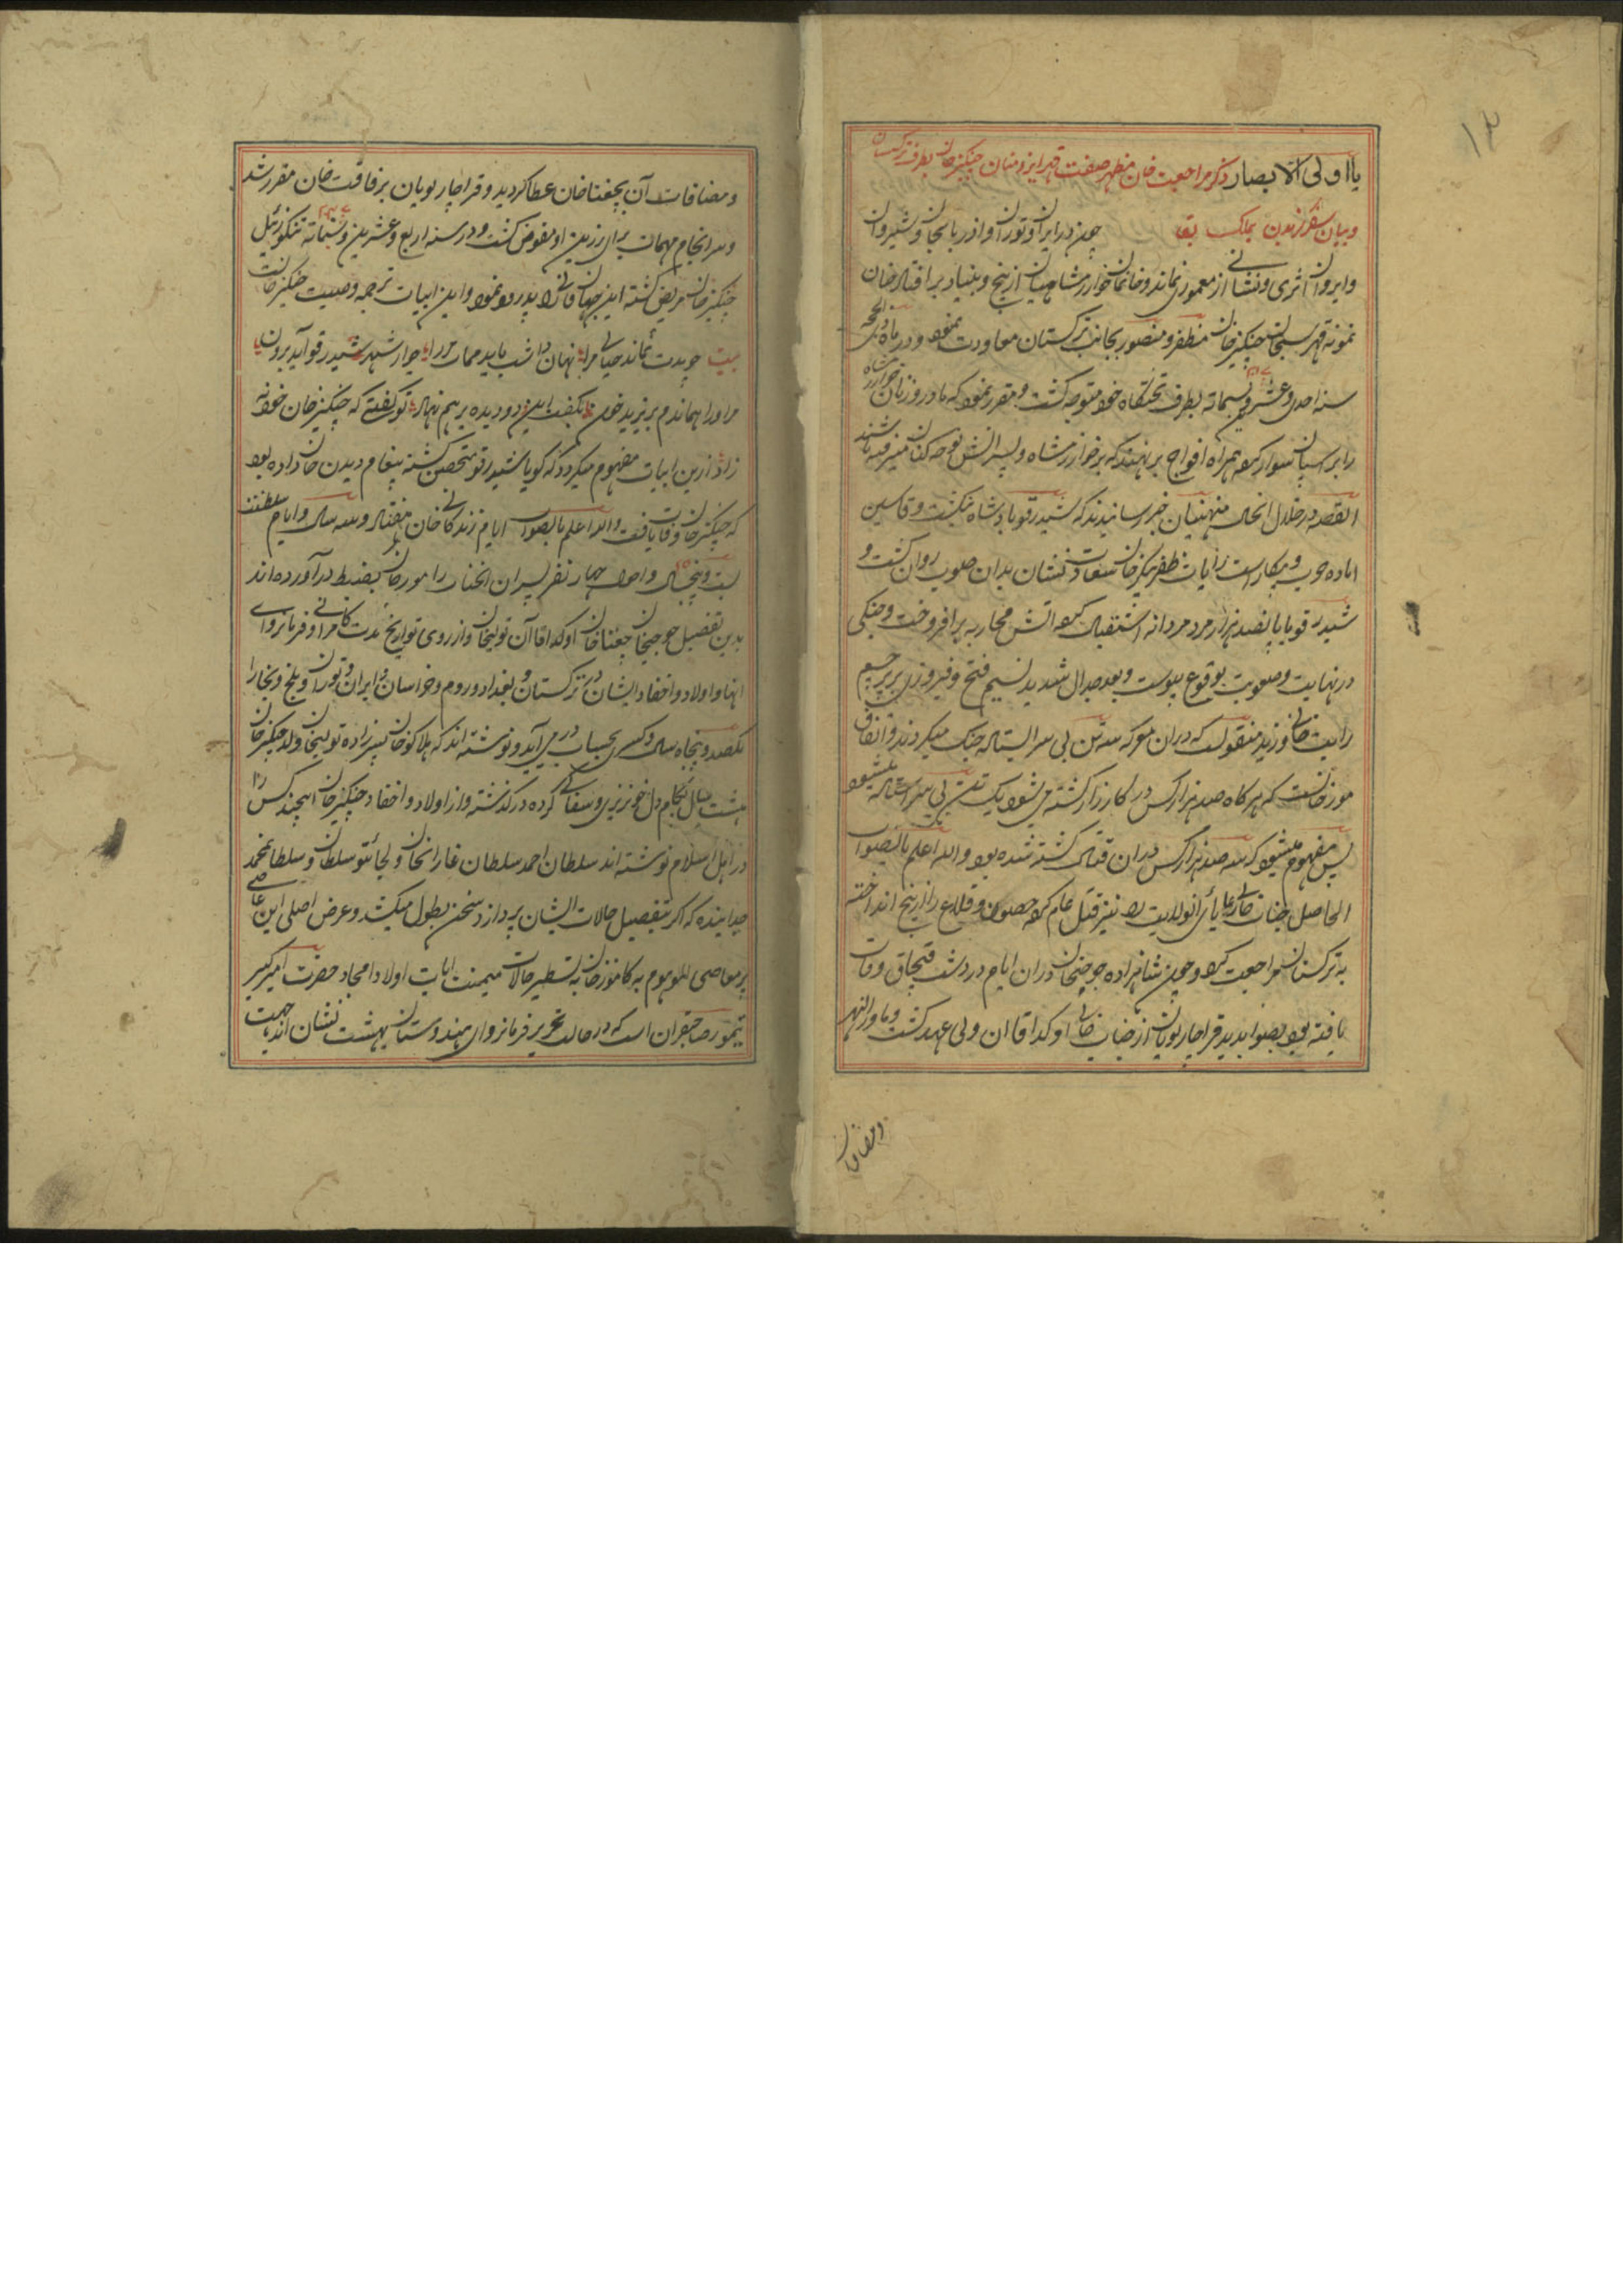 ۱۳
یا اولی الابصار ذکر مراجعت خان مظهر صفت قهر ایزد منان چنگیز خان بطرف ترکستان
و بیان سفر کردن بملک بقا چون در ایران و توران و اذربایجان و شیروان
و ایروان اثری و نشانی از معموری نماند و خانمان خوارزمشاهیان از بیخ و بنیاد بر افتاد خان
نمونه قهر سبحان چنگیز خان مظفر و منصور بجانب ترکستان معاودت نمود و در ماه ذیحجه
سنه احدی و عشرین و ستمائه بطرف تختگاه خود متوجه گشت و مقرر نمود که مادر و زنان خوارزمشاه
را بر اسپان سوار کرده همراه افواج بر خوارزمشاه و پسرانش نوحه کنان میرفته باشند
القصه در خلال انحال منهیان خبر رسانیدند که شیدرقو بادشاه تنکیت و قاسین
اماده حرب و پیکار است رایات ظفر چنگیز خان سعادت نشان بدان صوب روان گشت و
شیدرقو با پانصد هزار مرد مردانه استقبال کرده اتش محاربه بر افروخت و جنگی
در نهایت صعوبت بوقوع پیوست و بعد جدال شدید نسیم فتح و فیروزی بر پرچم
رایت خانی وزید منقولست که دران معرکه سه تن بی سر ایستاده جنگ میکردند و اتفاق
مورخانست که هر گاه صد هزار کس در کارزار کشته می شود یک تن بی سر استاده میشود
پس مفهوم میشود که سه صد هزار کس دران قتال کشته شده بود و الله اعلم بالصواب
الحاصل جناب خانی رعایای انولایت را نیز قتل عام کرده حصون و قلاع را از بیخ انداخته
به ترکستان مراجعت کرد و چون شاهزاده جوجیخان دران ایام در دشت قبچاق وفات
یافته بود بصوابدید قراچار نویان از جناب خانی اوکدا قاان ولی عهد گشت و ماورالنهر
ومضافات
و مضافات آن بچغتا خان عطا گردید و قراچار نویان برفاقت خان مقرر شد
و سرانجام مهمات برای رزین او مفوض گشت و در سنه اربع و عشرین و ستمائه تنکوزئیل
چنگیز خان مریض گشته این جهان فانی را پدرود نمود و این ابیات ترجمه وصیت چنگیز خانست
بیت چو مدت نماند حیات مرا نهان داشت باید ممات مرا چو از شهر شیدرقو آید برون
مر او را همانده بریزید خون بگفت این دو دیده بر هم نهاد تو گفتی که چنگیز خان خود نه
زاد ازین ابیات مفهوم میگردد که گویا شیدرقو متحصن گشته پیغام دیدن خان داده بود
که چنگیز خان وفات یافت و الله اعلم بالصواب ایام زندگانی خان هفتاد و سه سال و ایام سلطنت
بست و پنجسال و احوال چهار نفر پسران انجناب را مورخان بضبط در آورده اند
بدین تفصیل جوجیخان چغتا خان اوکدا قاآن تولیخان و از روی تواریخ مدت کامرانی و فرمانروای
انها و اولاد و احفاد ایشان در ترکستان و بغداد و روم و خراسان و ایران و توران و بلخ و بخارا
یکصد و پنجاه سال و کسری بحساب در می آید و نوشته اند که هلاکو خان پسر زاده تولیخان ولد چنگیز خان
هشت سال بکام دل خونریزی و سفاکی کرده در گذشته و از اولاد و احفاد چنگیز خان اینچند کس را
در اهل اسلام نوشته اند سلطان احمد سلطان غازانخان و لجائتو سلطان و سلطانمحمد
خدابنده که اگر بتفصیل حالات ایشان پردازد سخن بطول میکشد و غرض اصلی این عاصی
پر معاصی الموهوم به کامور خان به تسطیر حالات میمنت ایات اولاد امجاد حضرت امیر کبیر
تیمور صاحبقران است که در حالت تحریر فرمانروای هندوستان بهشت نشان اند